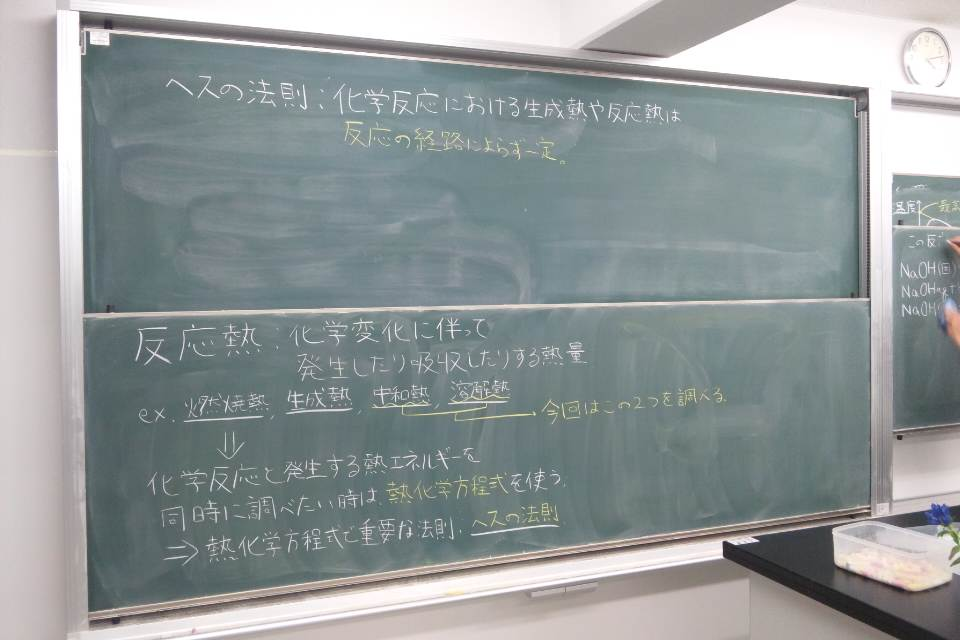 ヘスの法則：化学反応における生成熱や反応熱は
反応の経路によらず一定。
反応熱：化学変化に伴って
発生したり吸収したりする熱量
ex. 燃焼熱, 生成熱, 中和熱, 溶解熱 → 今回はこの2つを調べる.
⇓
化学反応と発生する熱エネルギーを
同時に調べたい時は, 熱化学方程式を使う.
⇒ 熱化学方程式で重要な法則：ヘスの法則
温度
この反
NaOH(固)
NaOHaq+
NaOH(